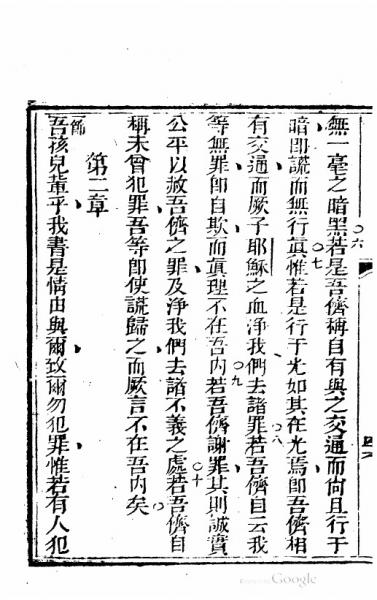 無一毫之暗黑若是吾儕稱自有與之交通而尚且行于
暗即謊而無行眞惟若是行于光如其在光焉即吾儕相
有交通而厥子耶穌之血淨我們去諸罪若吾儕自云我
等無罪即自欺而眞理不在吾內若吾儕謝罪其則誠實
公平以赦吾儕之罪及淨我們去諸不義之處若吾儕自
稱未曾犯罪吾等即使謊歸之而厥言不在吾內矣
第二章
一節
吾孩兒輩乎我書是情由與爾致爾勿犯罪惟若有人犯
六
七
八
九
十
Google